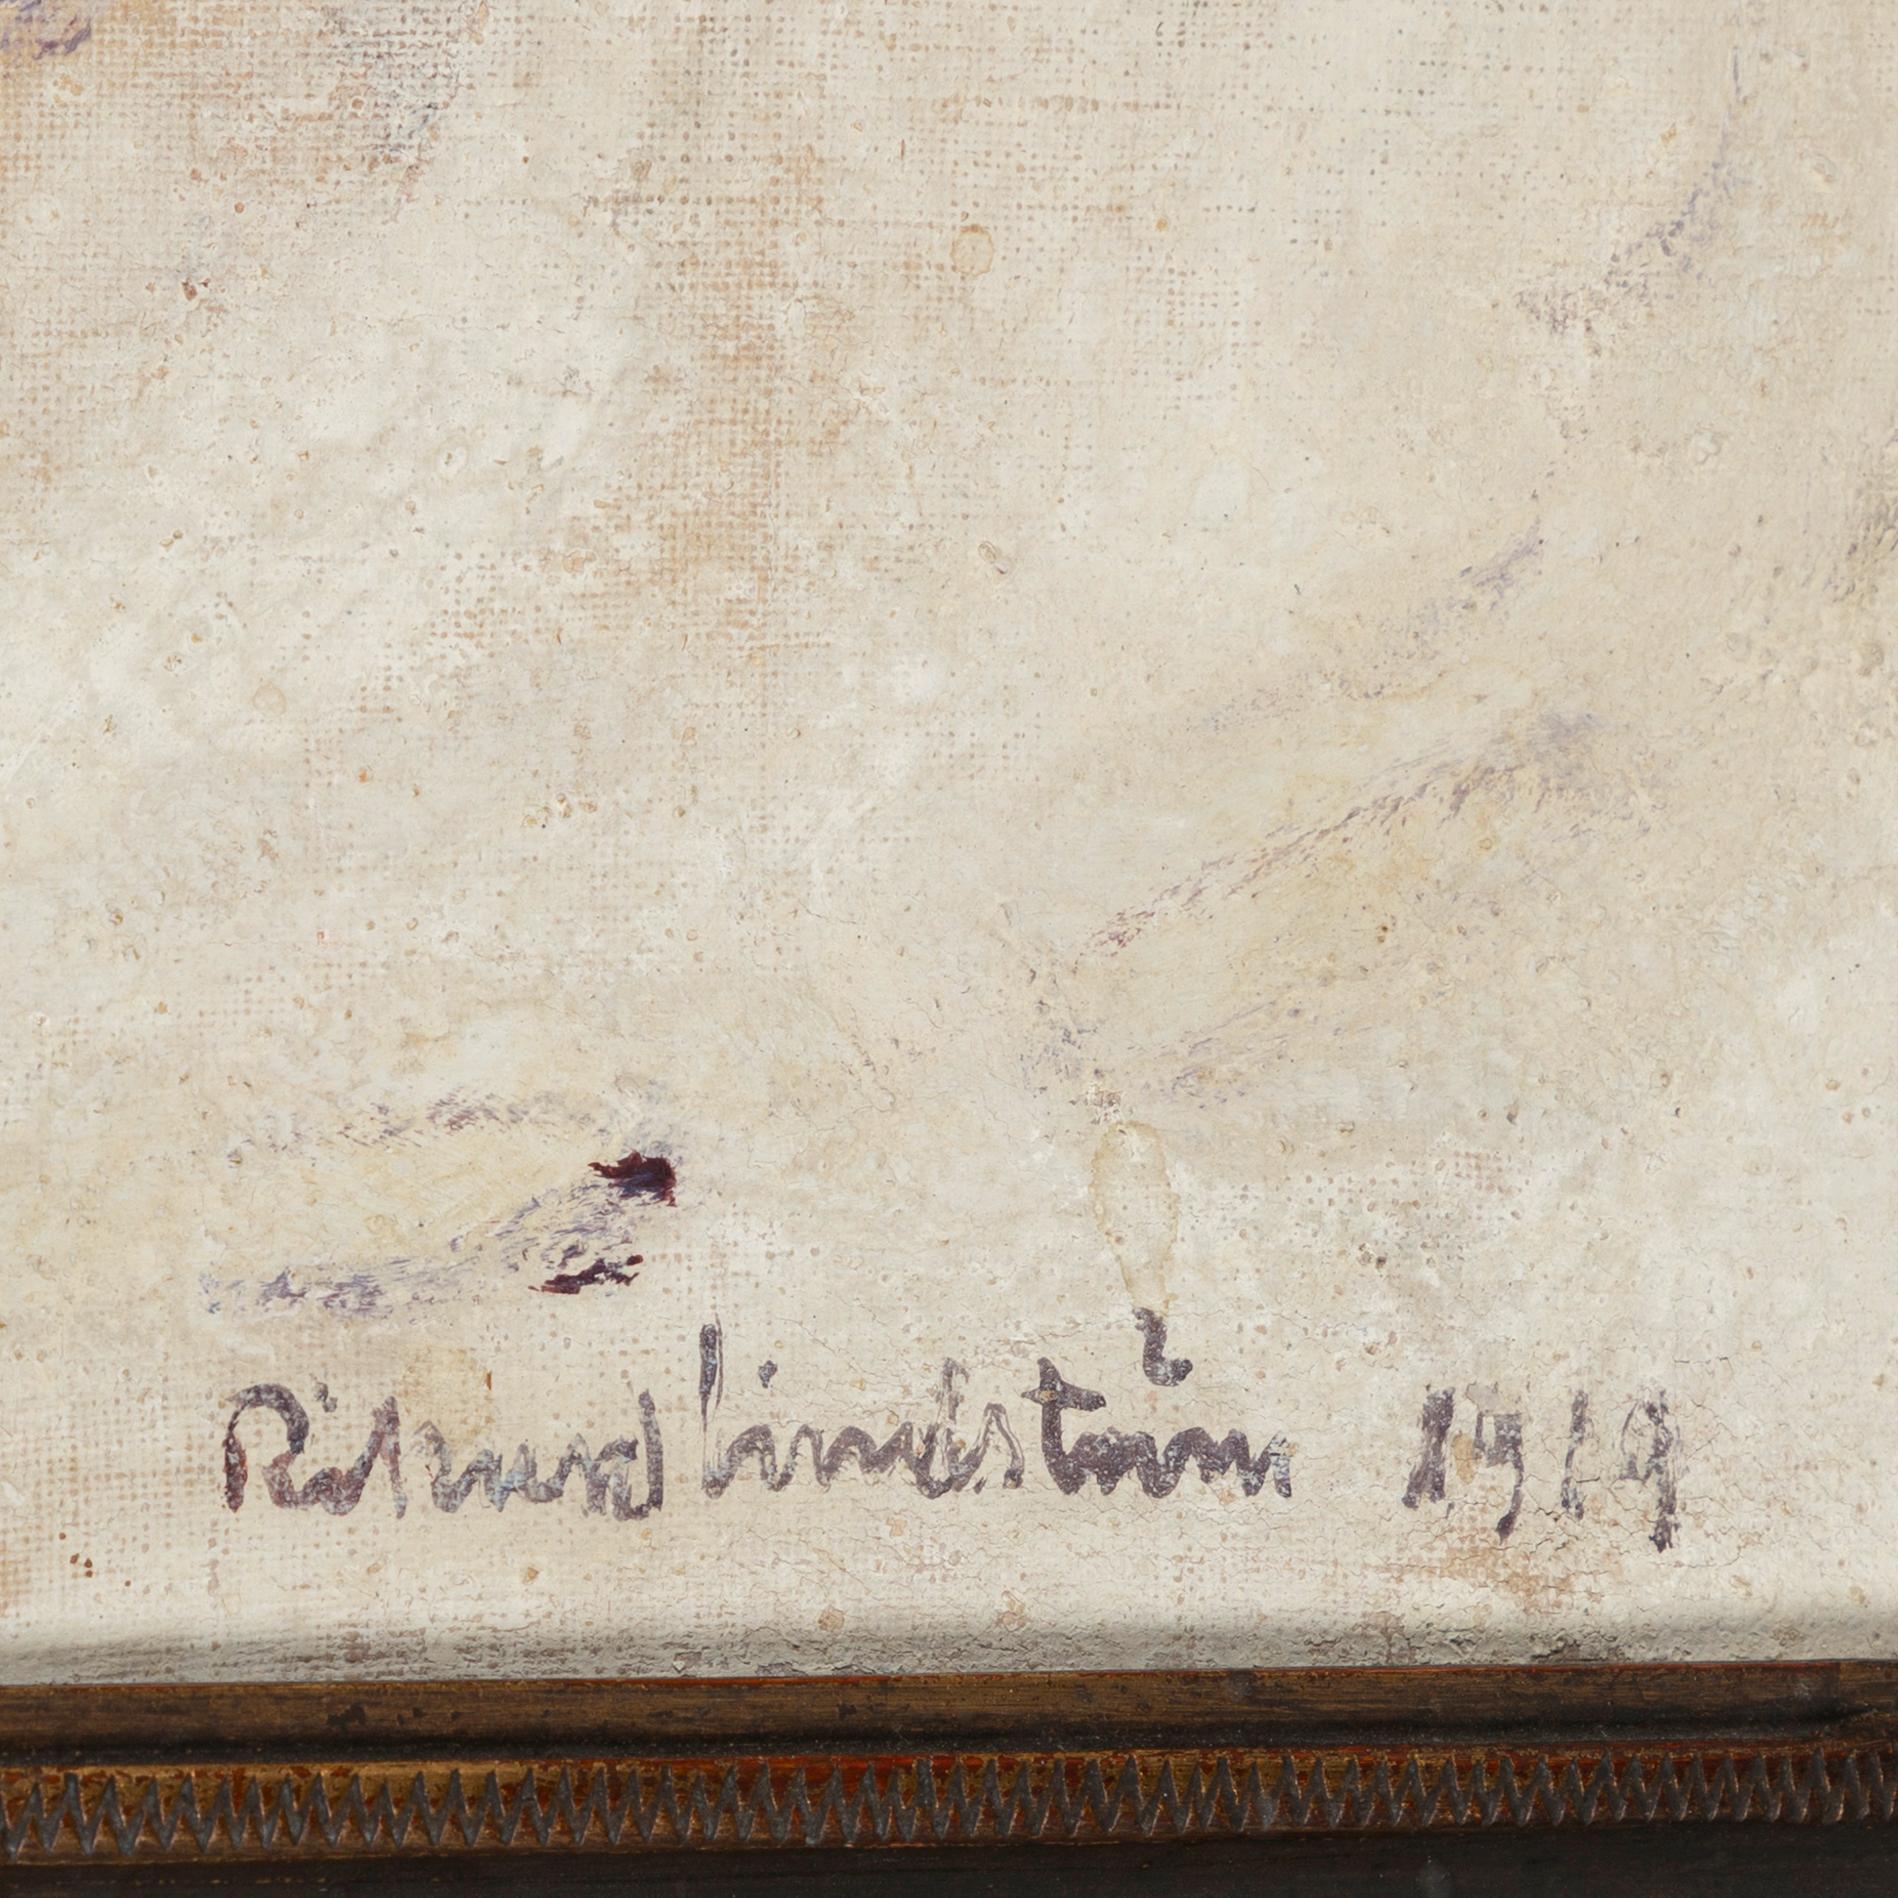 Rikard Lindström 1919